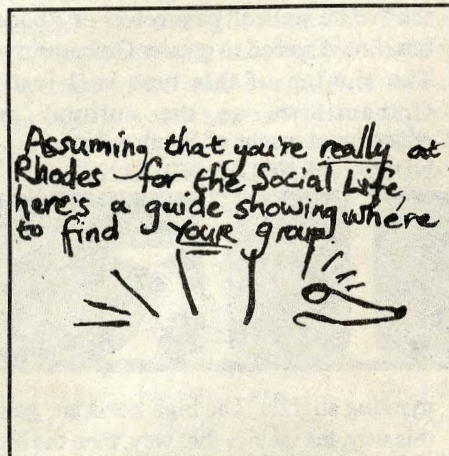 Assuming that you're really at
Rhodes for the Social Life,
here's a guide showing where
to find YOUR group.